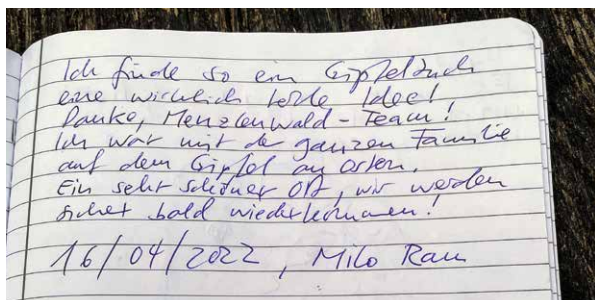 Ich finde so ein Gipfelbuch
eine wirklich tolle Idee!
Danke, Menzlenwald-Team!
Ich war mit der ganzen Familie
auf dem Gipfel an Ostern.
Ein sehr schöner Ort, wir werden
sicher bald wiederkommen!
16/04/2022, Milo Rau